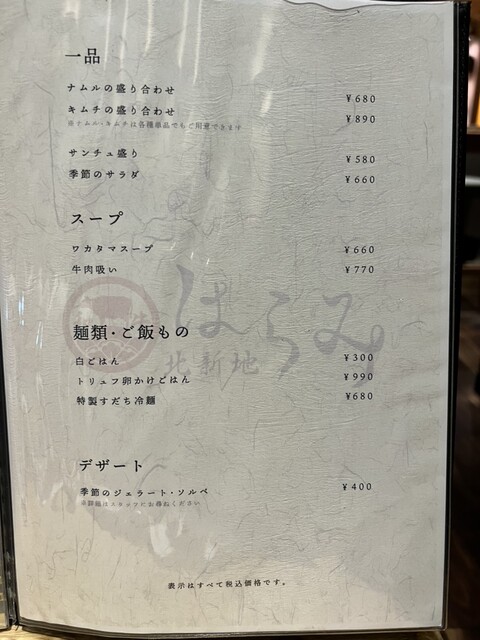 一品
ナムルの盛り合わせ ¥680
キムチの盛り合わせ ¥890
※ナムル・キムチは各種単品でもご用意できます
サンチュ盛り ¥580
季節のサラダ ¥660
スープ
ワカタマスープ ¥660
牛肉吸い ¥770
はらみ
北新地
麺類・ご飯もの
白ごはん ¥300
トリュフ卵かけごはん ¥990
特製すだち冷麺 ¥680
デザート
季節のジェラート・ソルベ ¥400
※詳細はスタッフにお尋ねください
表示はすべて税込価格です。